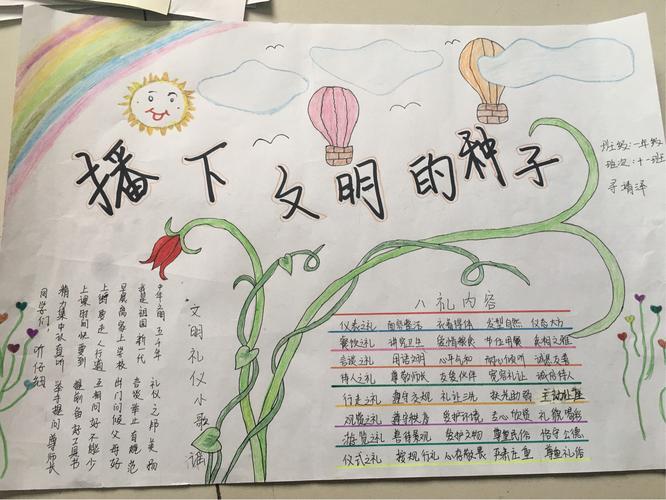 播下文明的种子
班级:一年级
班次:十一班
文明礼仪小歌谣
中华文明五千年 礼仪之邦美名扬
我是祖国新一代 言谈举止自规范
早晨离家上学校 出门问候父母好
上街要走人行道 互相问好不能少
上课时间快要到 提前备好工具书
精力集中认真听 举手提问尊师长
同学们:听仔细
八礼内容
仪表之礼 面容整洁 衣着得体 发型自然 仪态大方
餐饮之礼 讲究卫生 爱惜粮食 节俭用餐 食相文雅
言谈之礼 用语文明 心平气和 耐心倾听 诚恳友善
待人之礼 尊敬师长 友爱伙伴 宽容礼让 诚信待人
行走之礼 遵守交规 礼让三先 扶老助弱 主动让座
观赏之礼 遵守秩序 爱护环境 专心欣赏 礼貌喝彩
游览之礼 善待景观 爱护文物 尊重民俗 恪守公德
仪式之礼 按规行礼 心存敬畏 严肃庄重 尊重礼俗